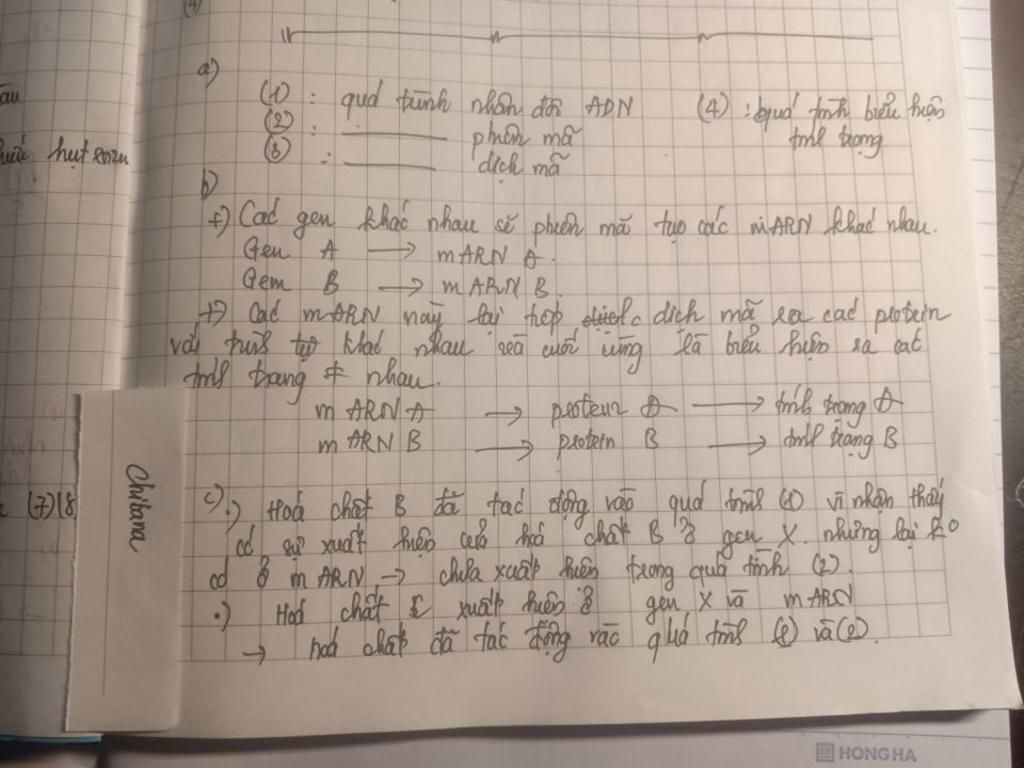 (4)
a)
(1) : quá trình nhân đôi ADN (4) : quá trình biểu hiện
(2) : phiên mã tính trạng
(3) : dịch mã
hụt
b)
+) Các gen khác nhau sẽ phiên mã tạo các mARN khác nhau.
Gen A → mARN A.
Gen B → mARN B.
+) Các mARN này lại dịch mã ra các protein
với trình tự khác nhau và cuối cùng là biểu hiện ra các
tính trạng ≠ nhau.
mARN A → protein A → tính trạng A
mARN B → protein B → tính trạng B
Chitana
(7)(8
c) •) Hoá chất B đã tác động vào quá trình (1) vì nhận thấy
có sự xuất hiện của hoá chất B ở gen X nhưng lại ko
có ở mARN → chưa xuất hiện trong quá trình (2).
•) Hoá chất xuất hiện ở gen X và mARN
→ hoá chất đã tác động vào quá trình (1) và (2).
HONG HA